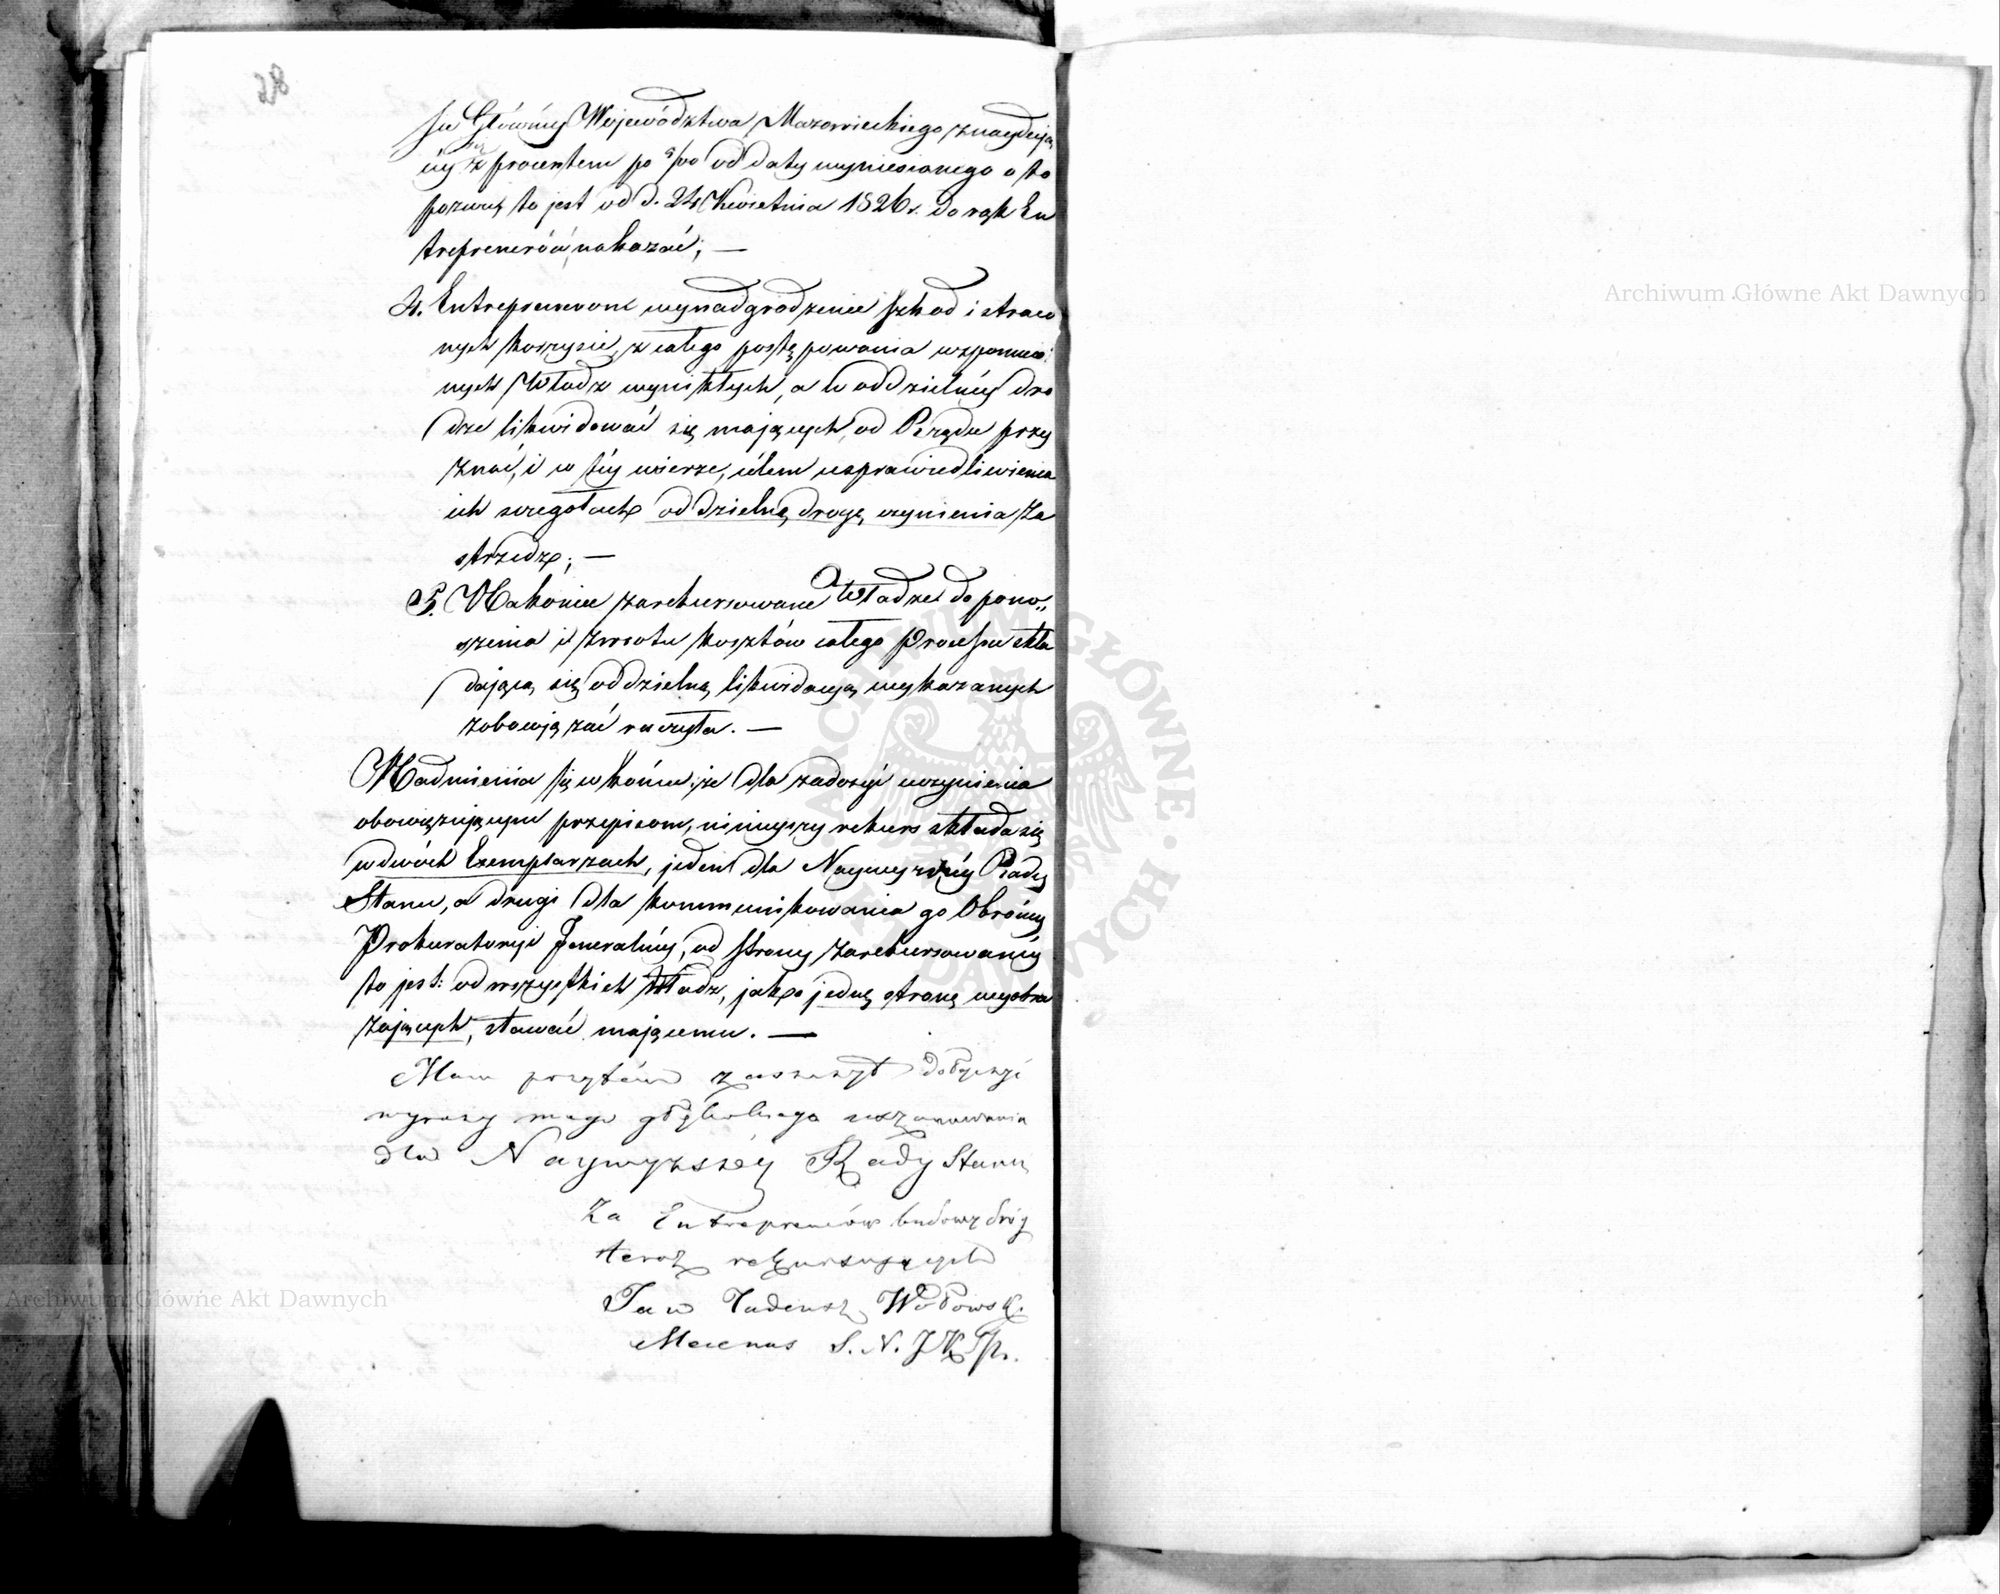 28
su Główney Województwa Mazowieckiego znaydują
cey się z procentem po 5/00 od daty wyniesionego o to
pozwu, to jest od d. 24 Kwietnia 1826 r. do rąk En
treprenerów nakazać; —
4. Entreprenerom wynadgrodzenie szkod i straco
nych korzyści, z całego postępowania wspomnio
nych Władz wynikłych, a w oddzielney dro
dze likwidować się mających, od Rządu przy
znać, i w tey mierze, celem usprawiedliwienia
ich szczegołach oddzielną drogę czynienia za
strzedz; —
5. Nakoniec zarekursowane Władze do pono„
szenia i zwrotu kosztów całego Processu skła
dającą się oddzielną likwidacyą wykazanych
zobowiązać raczyła. —
Nadmienia się w końcu, że dla zadosyć uczynienia
obowięzującym przepisom, ninieyszy rekurs składa się
w dwóch Exemplarzach, jeden dla Naywyższéy Rady
Stanu, a drugi dla kommunikowania go Obrońcy
Prokuratoryi Jeneralnéy, od strony zarekursowanéy
to jest: od wszystkich Władz, jako jednę stronę wyobra
żających, stawać mającemu. —
Mam przytém zaszczyt dołączyć
wyrazy mego głębokiego uszanowania
dla Naywyższéy Rady Stanu
Za Entreprenerów budowy dróg
teraz rekursujących
Jan Tadeusz Wołowski
Mecenas S. N. J K P.
Archiwum Główne Akt Dawnych
Archiwum Główne Akt Dawnych
ARCHIWUM GŁÓWNE AKT DAWNYCH